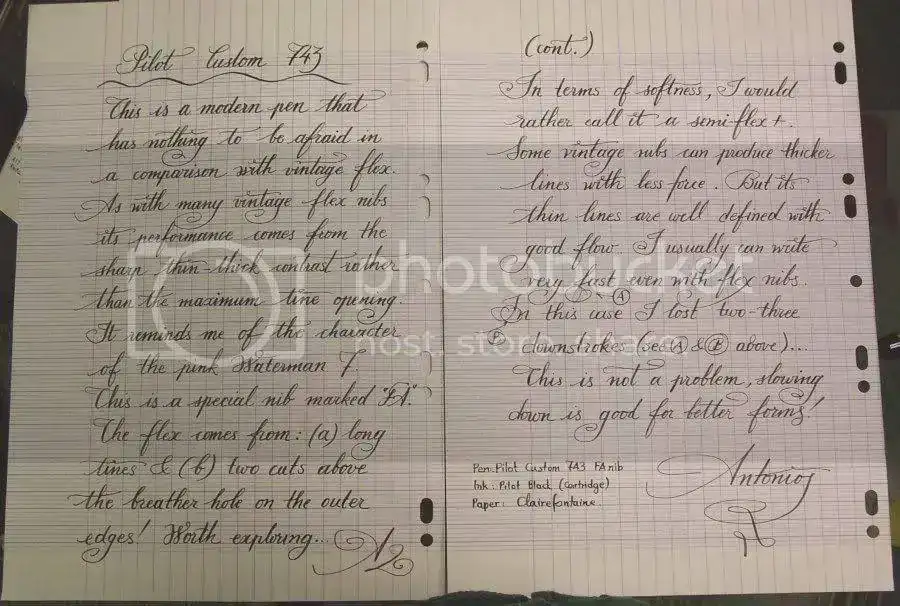 Pilot Custom 743
This is a modern pen that
has nothing to be afraid in
a comparison with vintage flex.
As with many vintage flex nibs
its performance comes from the
sharp thin-thick contrast rather
than the maximum tine opening.
It reminds me of the character
of the pink Waterman 7.
This is a special nib marked "FA".
The flex comes from: (a) long
tines & (b) two cuts above
the breather hole on the outer
edges! Worth exploring...
(cont.)
In terms of softness, I would
rather call it a semi-flex+.
Some vintage nibs can produce thicker
lines with less force. But its
thin lines are well defined with
good flow. I usually can write
very fast even with flex nibs.
A
In this case I lost two-three
B
downstrokes (see A & B above)...
This is not a problem, slowing
down is good for better forms!
Pen: Pilot Custom 743 FA nib
Ink: Pilot Black (Cartridge)
Paper: Clairefontaine.
Antonios
photobucket
host. store.